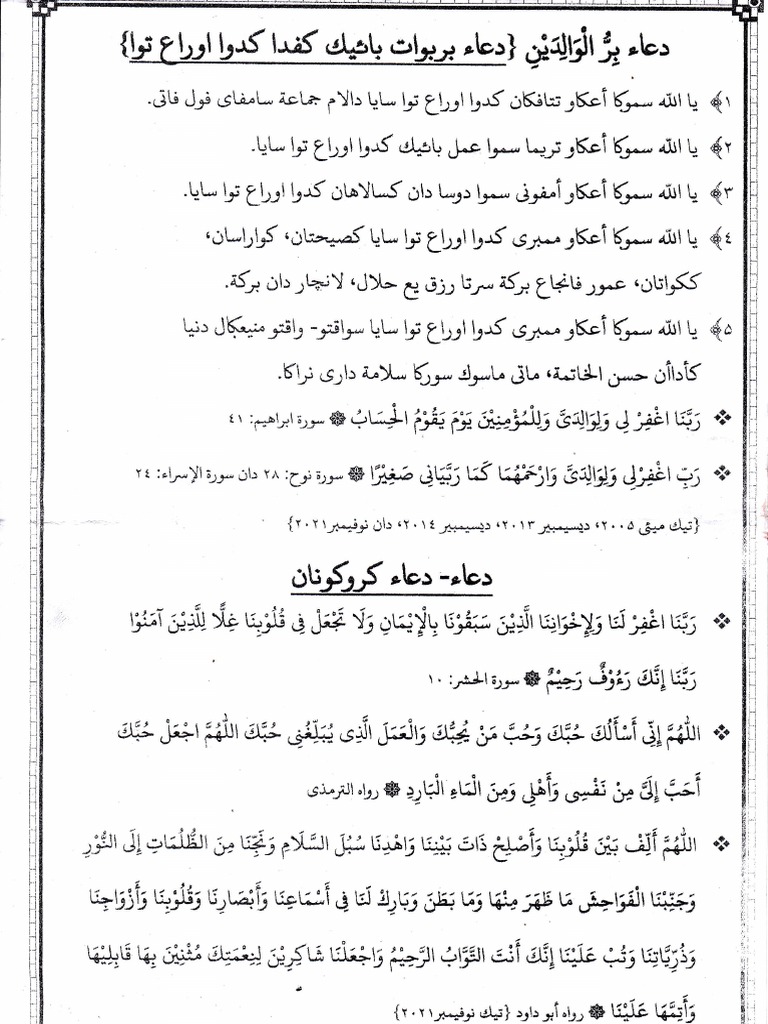 دعاء بِرُّ الْوَالِدَيْنِ {دعاء بربوات بائيك كفدا كدوا اوراع توا}
١﴾ يا الله سموكا أعكاو تتافكان كدوا اوراع توا سايا دالام جماعة سامفاى فول فاتى.
٢﴾ يا الله سموكا أعكاو تريما سموا عمل بائيك كدوا اوراع توا سايا.
٣﴾ يا الله سموكا أعكاو أمفونى سموا دوسا دان كسالاهان كدوا اوراع توا سايا.
٤﴾ يا الله سموكا أعكاو ممبرى كدوا اوراع توا سايا كصيحتان، كواراسان،
ككواتان، عمور فانجاع بركة سرتا رزق يع حلال، لانچار دان بركة.
٥﴾ يا الله سموكا أعكاو ممبرى كدوا اوراع توا سايا سواقتو- واقتو منيعكال دنيا
كأداأن حسن الخاتمة، ماتى ماسوك سوركا سلامة دارى نراكا.
❖ رَبَّنَا اغْفِرْ لِى وَلِوَالِدَىَّ وَلِلْمُؤْمِنِيْنَ يَوْمَ يَقُوْمُ الْحِسَابُ ۞ سورة ابراهيم: ٤١
❖ رَبِّ اغْفِرْلِى وَلِوَالِدَىَّ وَارْحَمْهُمَا كَمَا رَبَّيَانِى صَغِيْرًا ۞ سورة نوح: ٢٨ دان سورة الإسراء: ٢٤
{تيك ميئى ٢٠٠٥، ديسيمبير ٢٠١٣، ديسيمبير ٢٠١٤، دان نوفيمبر٢٠٢١}
دعاء- دعاء كروكونان
❖ رَبَّنَا اغْفِرْ لَنَا وَلِإِخْوَانِنَا الَّذِيْنَ سَبَقُوْنَا بِالْإِيْمَانِ وَلَا تَجْعَلْ فِى قُلُوْبِنَا غِلًّا لِلَّذِيْنَ آمَنُوْا
رَبَّنَا إِنَّكَ رَءُوْفٌ رَحِيْمٌ ۞ سورة الحشر: ١٠
❖ اللّٰهُمَّ إِنِّى أَسْأَلُكَ حُبَّكَ وَحُبَّ مَنْ يُحِبُّكَ وَالْعَمَلَ الَّذِى يُبَلِّغُنِى حُبَّكَ اللّٰهُمَّ اجْعَلْ حُبَّكَ
أَحَبَّ إِلَىَّ مِنْ نَفْسِى وَأَهْلِى وَمِنَ الْمَاءِ الْبَارِدِ ۞ رواه الترمذى
❖ اللّٰهُمَّ أَلِّفْ بَيْنَ قُلُوْبِنَا وَأَصْلِحْ ذَاتَ بَيْنِنَا وَاهْدِنَا سُبُلَ السَّلَامِ وَنَجِّنَا مِنَ الظُّلُمَاتِ إِلَى النُّوْرِ
وَجَنِّبْنَا الْفَوَاحِشَ مَا ظَهَرَ مِنْهَا وَمَا بَطَنَ وَبَارِكْ لَنَا فِى أَسْمَاعِنَا وَأَبْصَارِنَا وَقُلُوْبِنَا وَأَزْوَاجِنَا
وَذُرِّيَّاتِنَا وَتُبْ عَلَيْنَا إِنَّكَ أَنْتَ التَّوَّابُ الرَّحِيْمُ وَاجْعَلْنَا شَاكِرِيْنَ لِنِعْمَتِكَ مُثْنِيْنَ بِهَا قَابِلِيْهَا
وَأَتِمَّهَا عَلَيْنَا ۞ رواه أبو داود {تيك نوفيمبر٢٠٢١}